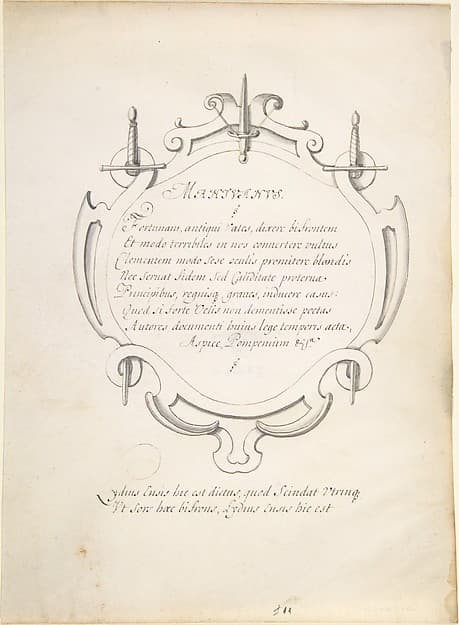 MANTVANVS.
Fortunam, antiqui Vates, dixere bifrontem
Et modo terribiles in nos conuertere vultus
Clementem modo sese oculis promittere blandis
Nec seruat fidem sed Caliditate proterua
Principibus, regnisq graues, induere casus:
Quod si forte Velis non dementisse poetas
Autores documenti huius lege temporis acta,
Aspice Pompeium
Lydius Ensis hic est dictus, quod Scindat Vtrinq
Vt Sors haec bifrons, Lydius Ensis hic est